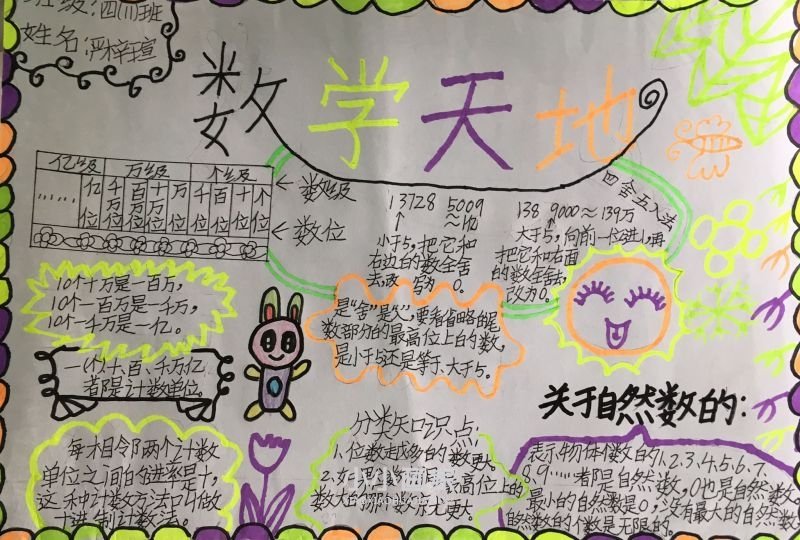 班级:四(1)班
姓名:严梓瑄
数学天地
亿级 万级 个级
…… 亿位 千万位 百万位 十万位 万位 千位 百位 十位 个位
←数级
←数位
四舍五入法
13728 5009
小于5,把它和
右边的数全舍
去,改写为0。
138 9000≈139万
大于5,向前一位进1,再
把它和右面
的数全舍去,
改为0。
10个十万是一百万,
10个一百万是一千万,
10个一千万是一亿。
一(个)、十、百、千、万、亿
都是计数单位
是"舍"是"入",要看省略的尾
数部分的最高位上的数,
是小于5还是等于、大于5。
每相邻两个计数
单位之间的进率是十,
这种计数方法叫做
十进制计数法。
分类知识点:
1.位数越多的数更大
2.如果 最高位上的
数大的那个数就更大。
小小画家
关于自然数的:
表示物体个数的1、2、3、4、5、6、7、
8、9……都是自然数,0也是自然数。
最小的自然数是0,没有最大的自然数
自然数的个数是无限的。